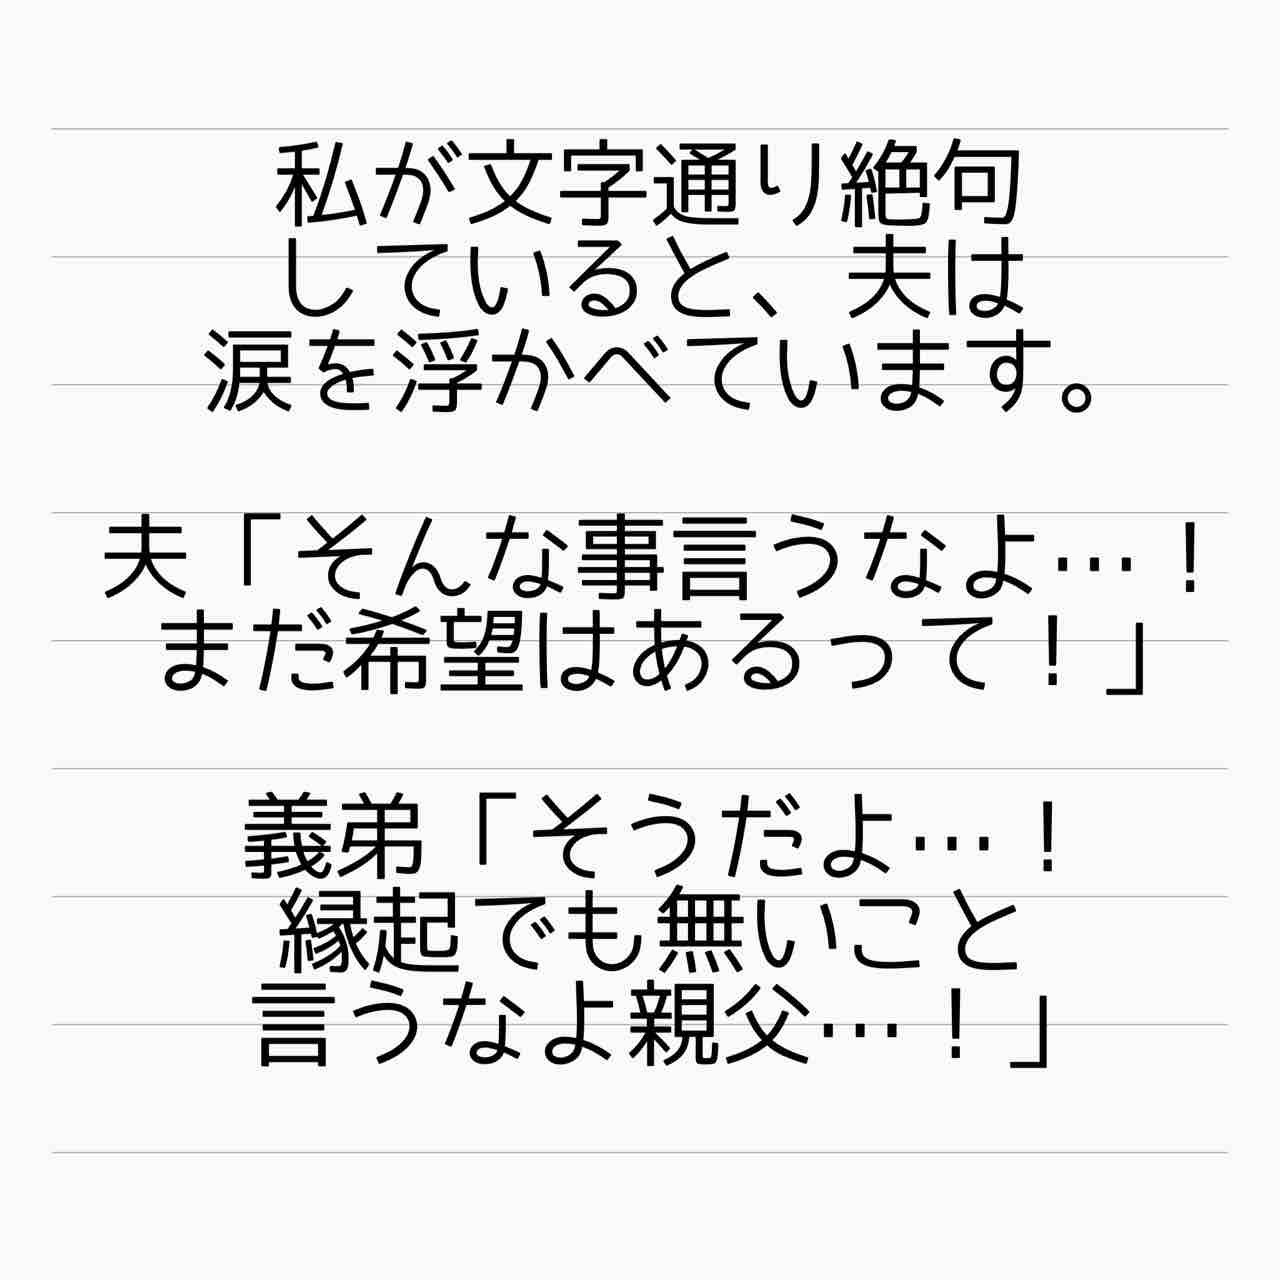 私が文字通り絶句
していると、夫は
涙を浮かべています。
夫「そんな事言うなよ…！
まだ希望はあるって！」
義弟「そうだよ…！
縁起でも無いこと
言うなよ親父…！」